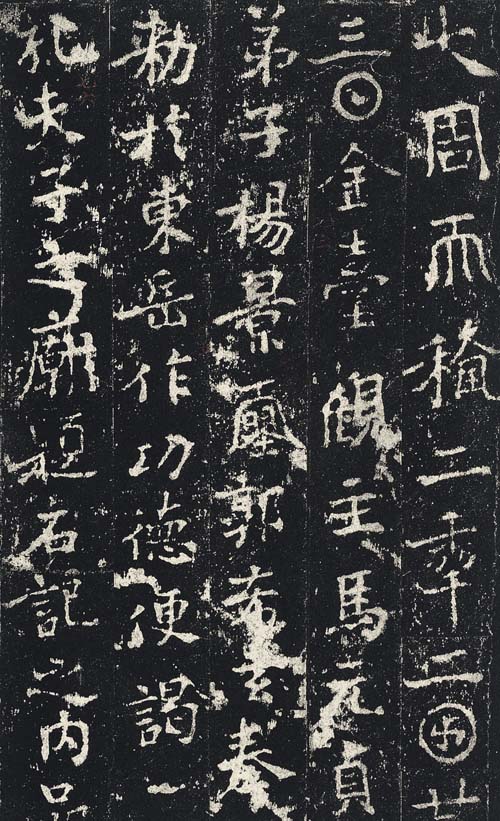 大周𠀑𥠢二𠡦二𡇹廿
三𡆠金臺觀主馬元貞
弟子楊景𡔈郭希玄奉
勅於東岳作功德便謁
孔夫子廟題石記之內品